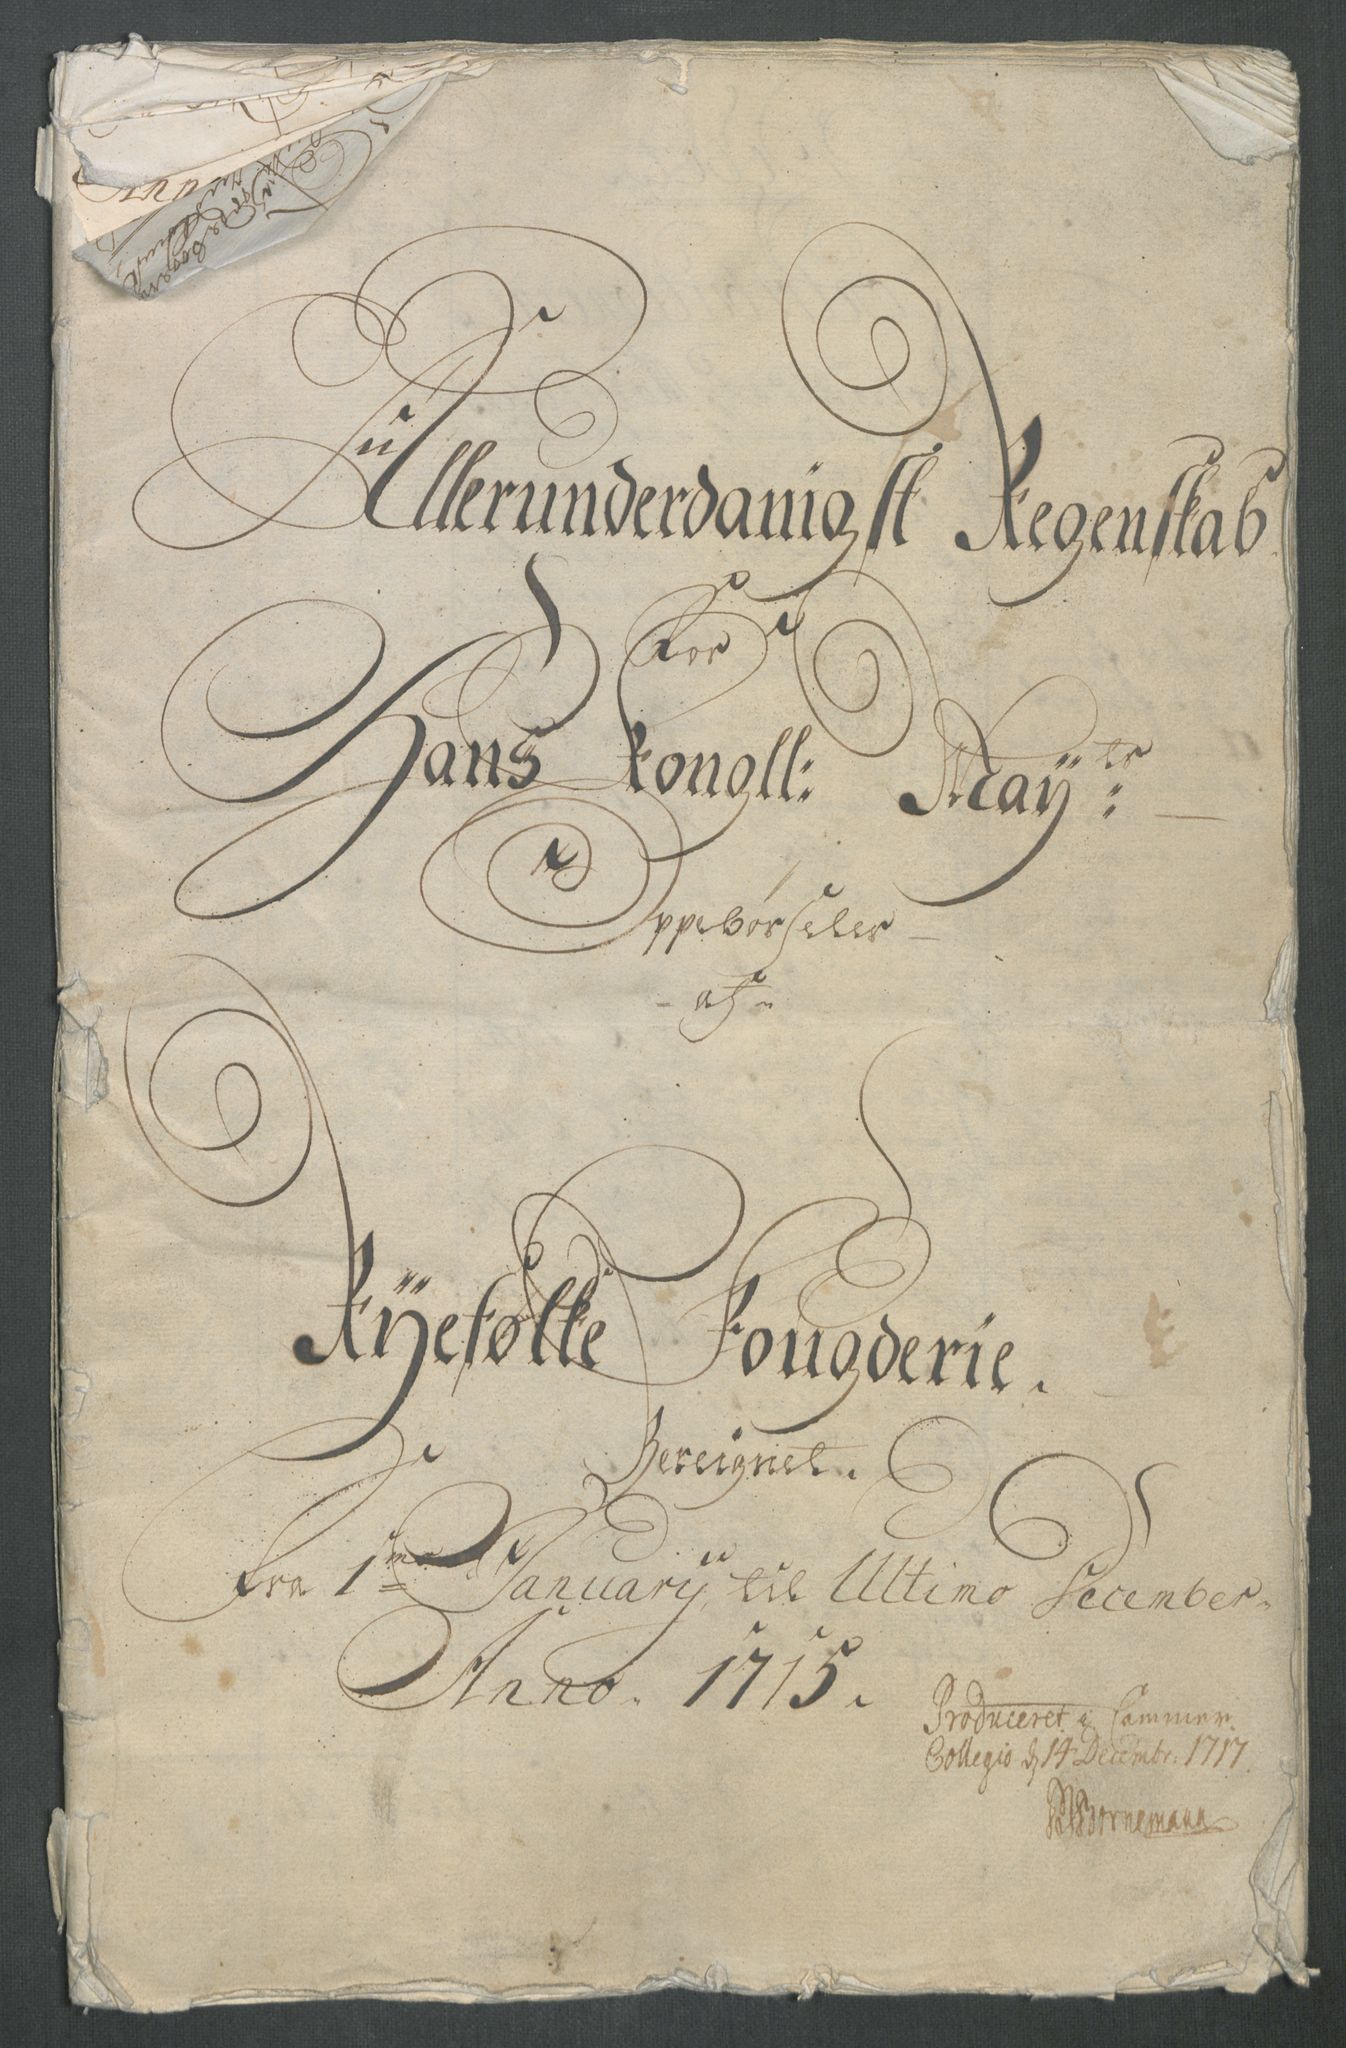 Allerunderdanigst Regenskab
for
Hans Kongll: Maÿ:ts
Oppebørseler
af
Rÿefølke Fougderie.
Bereignet.
Fra 1mo Januarÿ til Ultimo December
Anno. 1715.
Produceret i Cammer
Collegio d 14 Decembr: 1717.
Bornemann